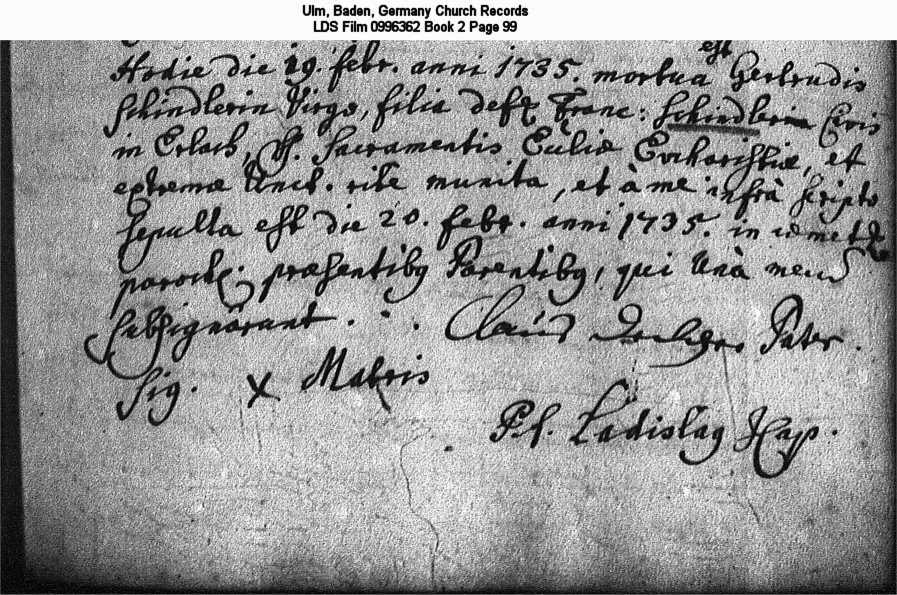 Ulm, Baden, Germany Church Records
LDS Film 0996362 Book 2 Page 99
est
Hodie die 19. febr. anni 1735. mortua Gertrudis
Schindlerin Virgo, filia def: Franc: Schindlerin Civis
in Erlach, SS. Sacramentis Eucharistiæ, et
extremæ Unct. rite munita, et à me infrà scripto
sepulta est die 20. febr. anni 1735. in
paroch: præsentibg Parentibg, qui unà mecu
subsignârunt. Claus Pater.
Sig. X Matris
P. f. Ladislag Cap.